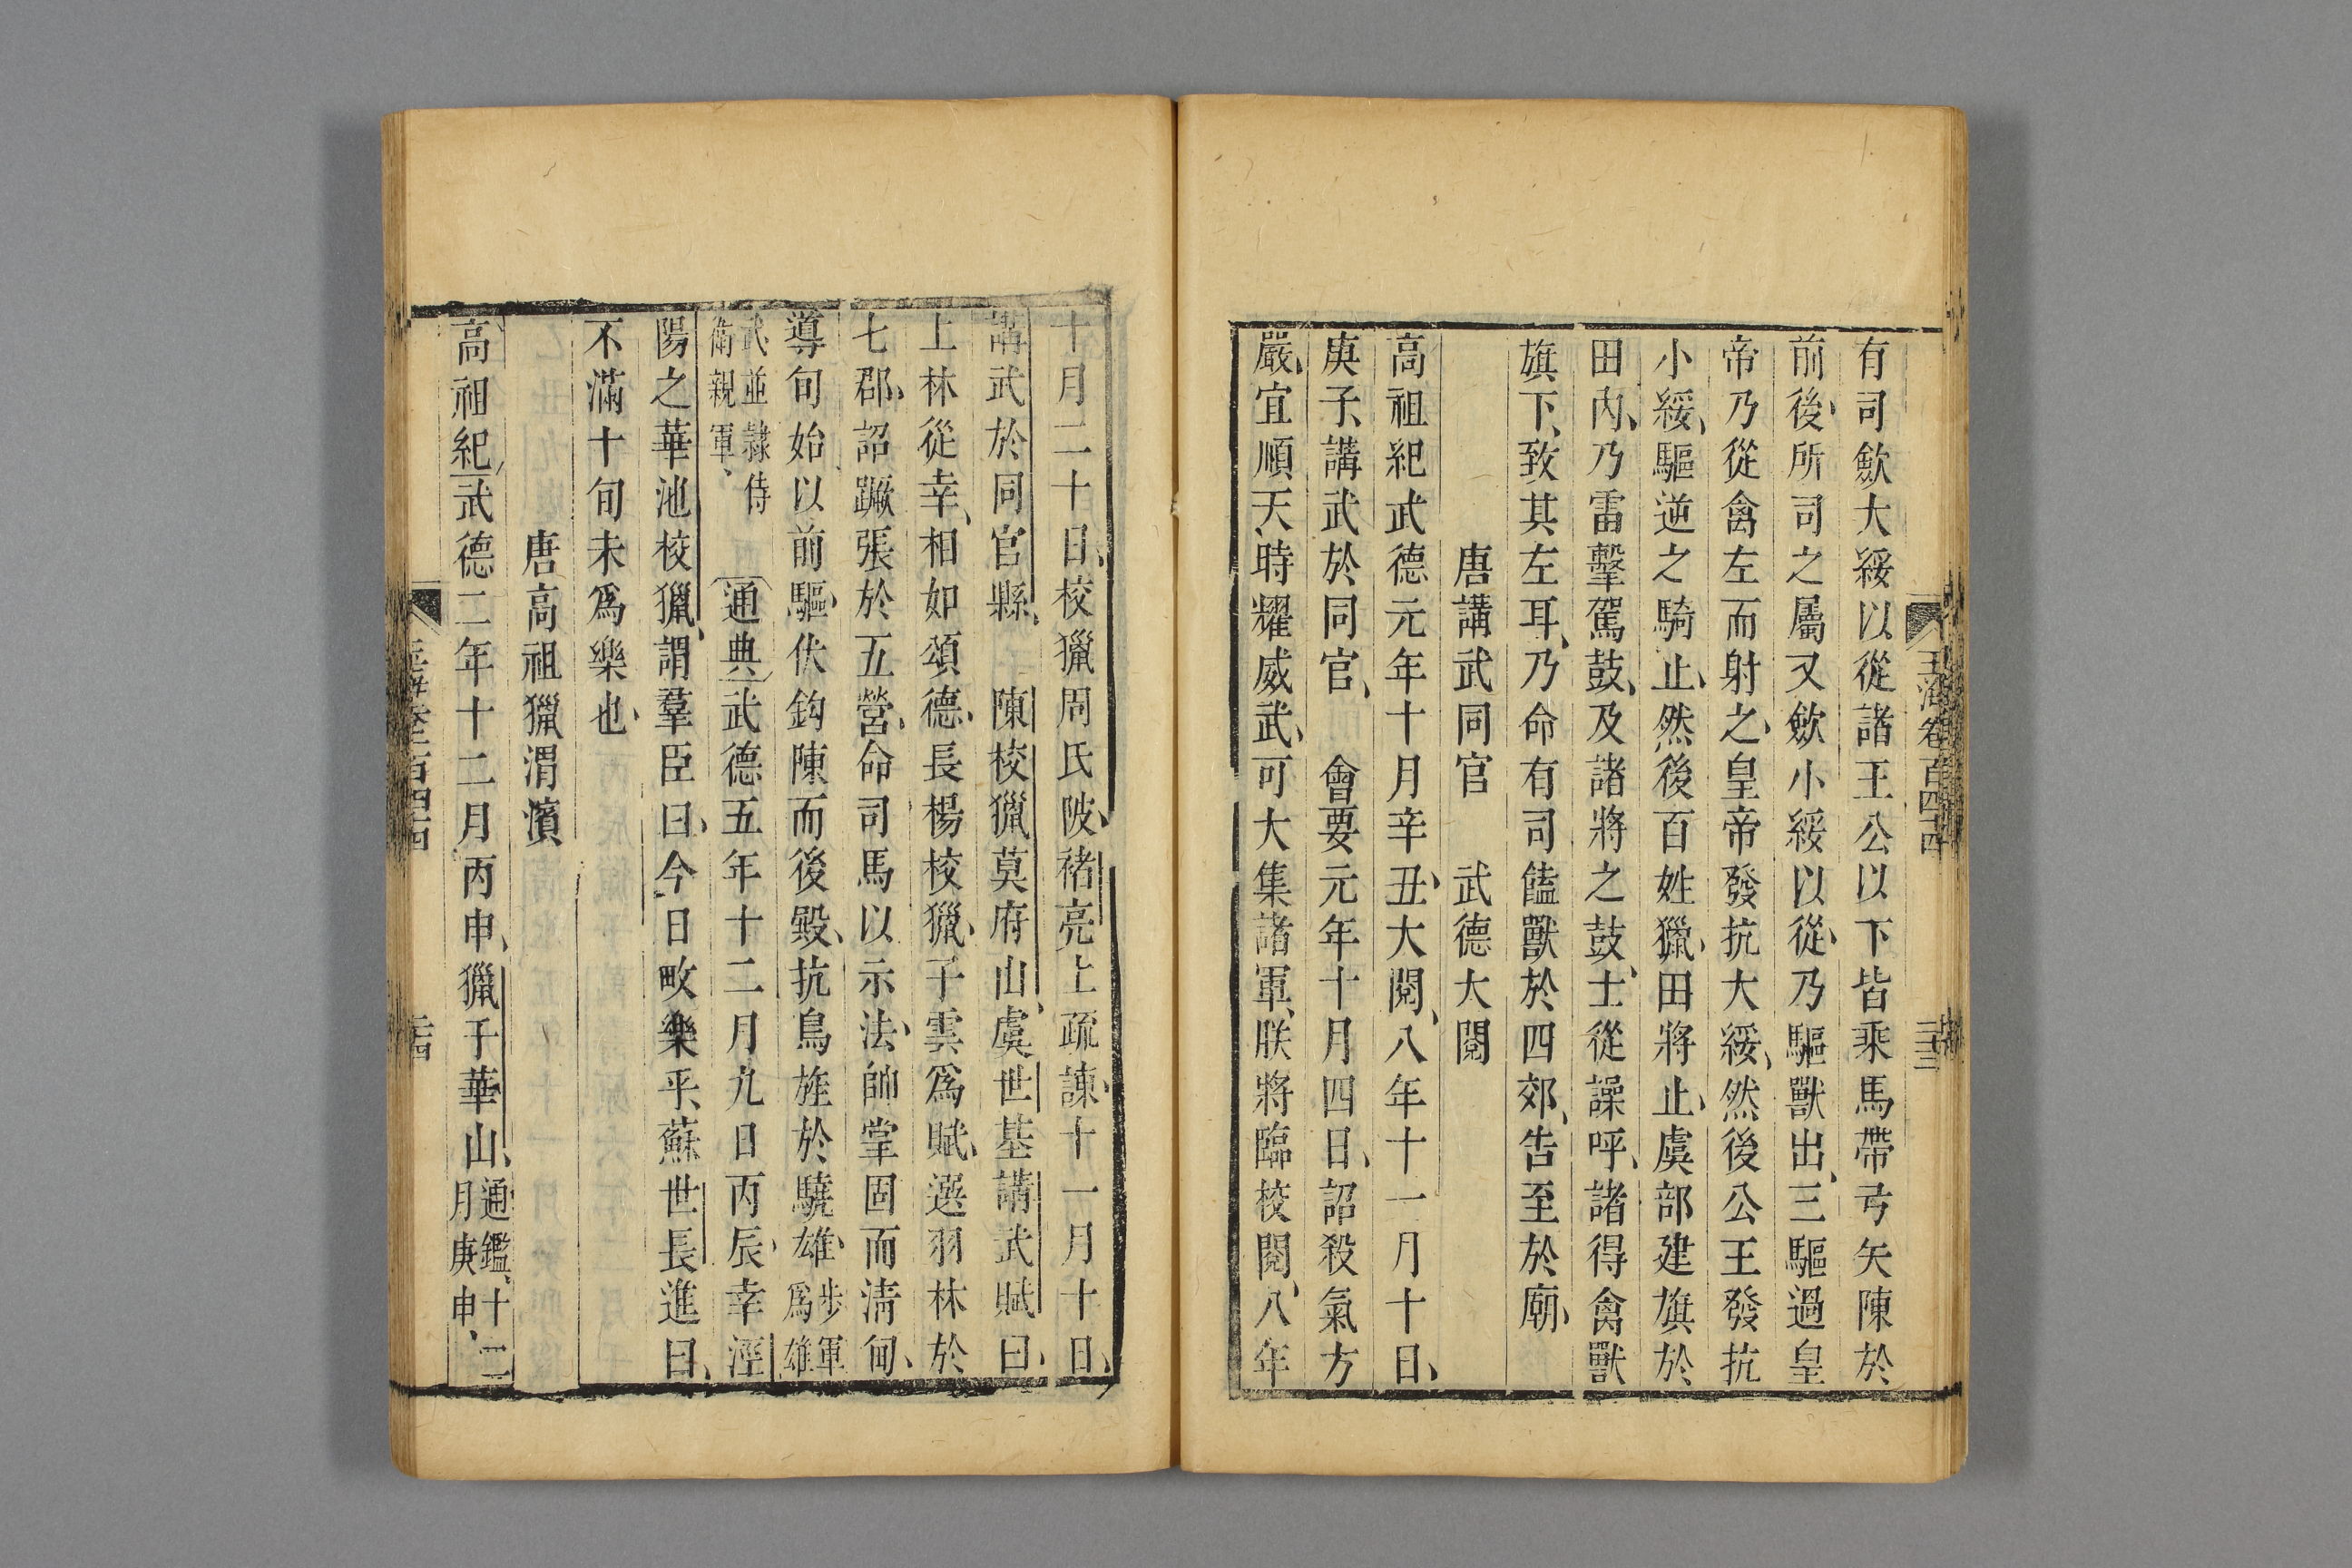 有司斂大綏以從諸王公以下皆乘馬帶弓矢陳於
前後所司之屬又斂小綏以從乃驅獸出三驅過皇
帝乃從禽左而射之皇帝發抗大綏然後公王發抗
小綏驅逆之騎止然後百姓獵田將止虞部建旗於
田內乃雷擊駕鼓及諸將之鼓士從譟呼諸得禽獸
旗下致其左耳乃命有司饁獸於四郊告至於廟
唐講武同官　武德大閱
高祖紀武德元年十月辛丑大閱八年十一月十日
庚子講武於同官　會要元年十月四日詔殺氣方
嚴宜順天時耀威武可大集諸軍朕將臨校閱八年
玉海卷一百四十四
二十三
十月二十日校獵周氏陂褚亮上疏諫十一月十日
講武於同官縣　陳校獵莫府山虞世基講武賦曰
上林從幸相如頌德長楊校獵子雲爲賦選羽林於
七郡詔蹶張於五營命司馬以示法帥掌固而清甸
導旬始以前驅伏鈎陳而後殿抗鳥旌於驍雄步軍
爲雄
武並隸侍
衛親軍　通典武德五年十二月九日丙辰幸涇
陽之華池校獵謂羣臣曰今日畋樂乎蘇世長進曰
不滿十旬未爲樂也
唐高祖獵渭濱
高祖紀武德二年十二月丙申獵于華山通鑑十二
月庚申
玉海卷一百四十四
二十四